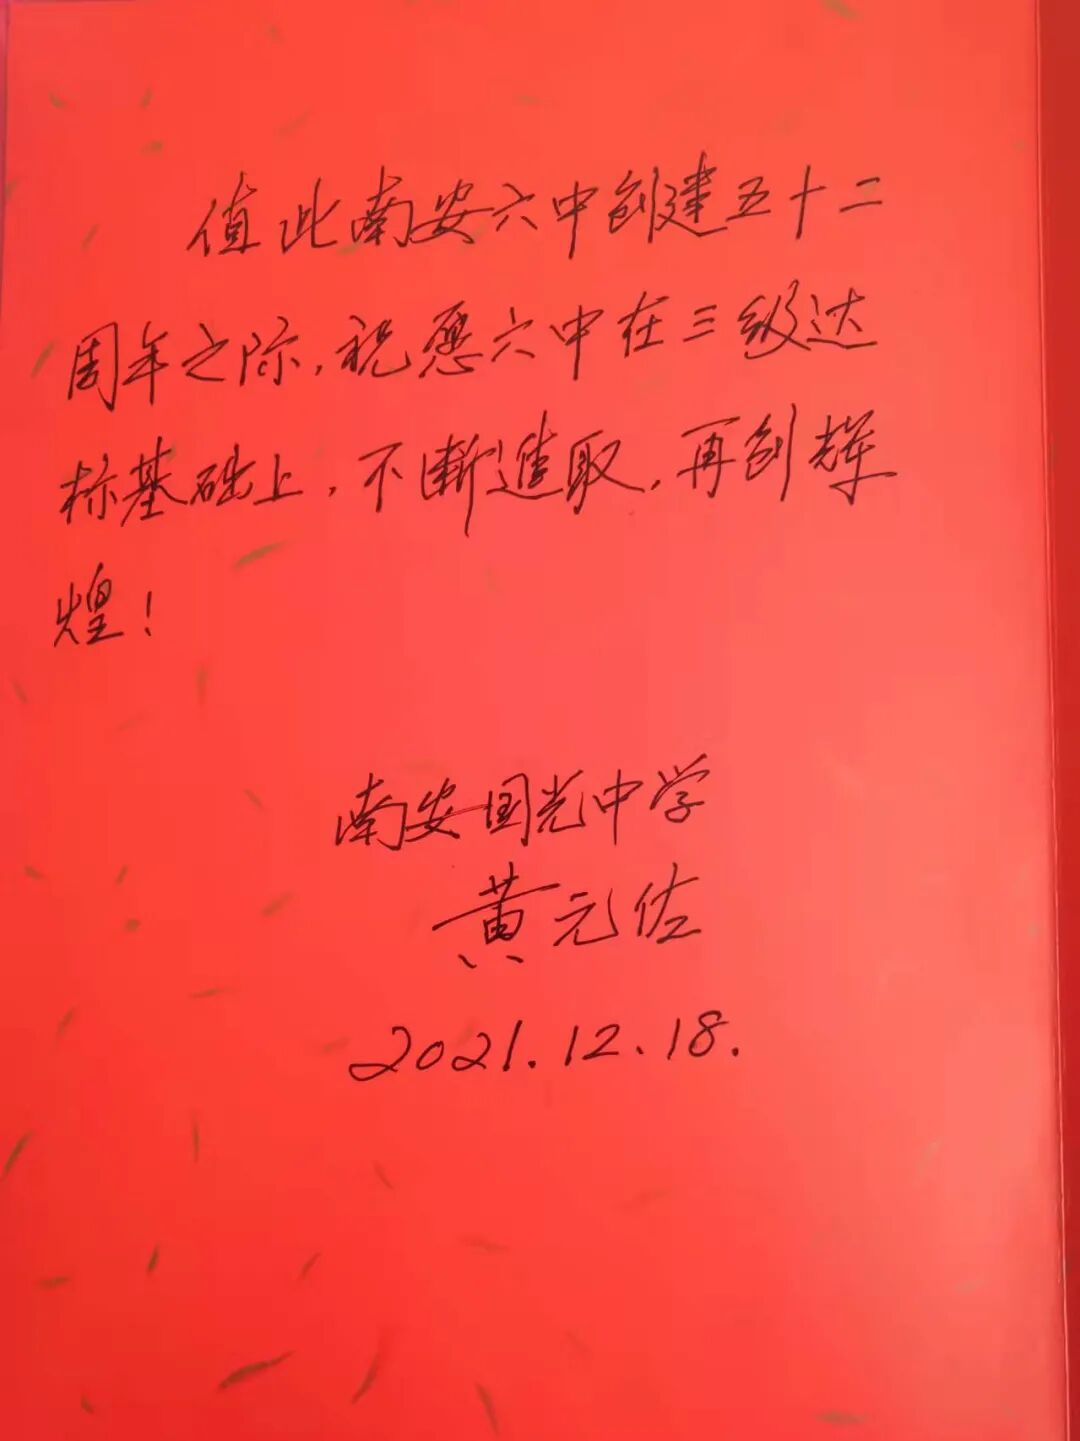 值此南安六中创建五十二
周年之际，祝愿六中在三级达
标基础上，不断進取，再创辉
煌！
南安国光中学
黄元佐
2021.12.18.